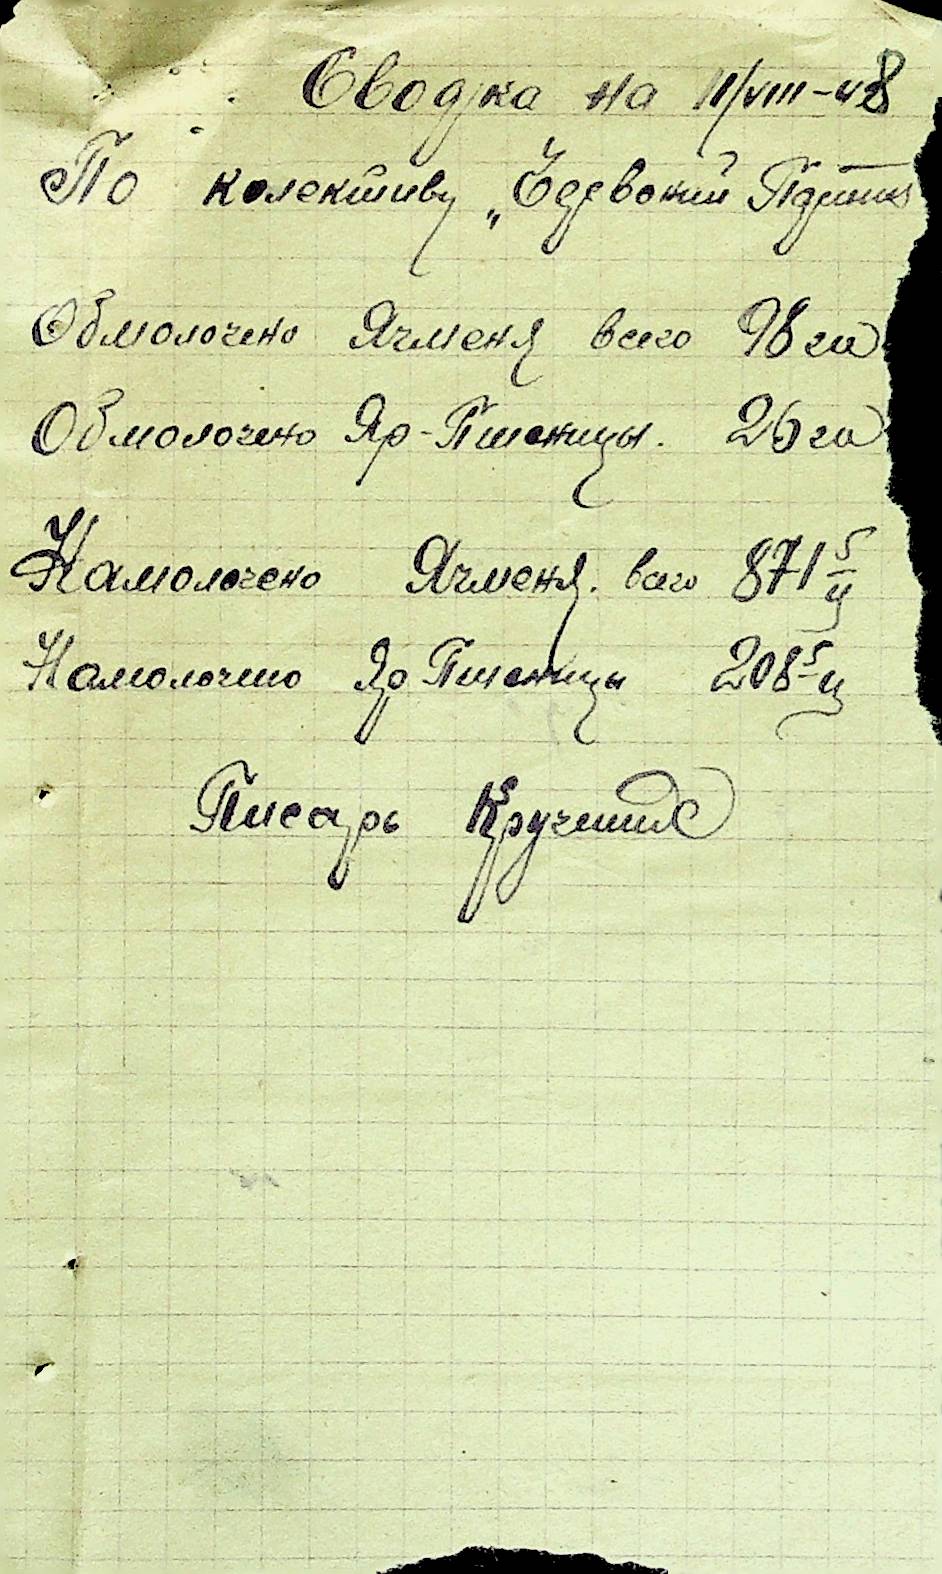 Сводка на 11/VIII-48
По колективу „
Обмолочено Ячменя всего 98 га
Обмолочено Яр-Пшеницы. 26 га
Намолочено Ячменя. всего 871 5 ц
Намолочено Яр Пшеницы 208 5 ц
Писарь